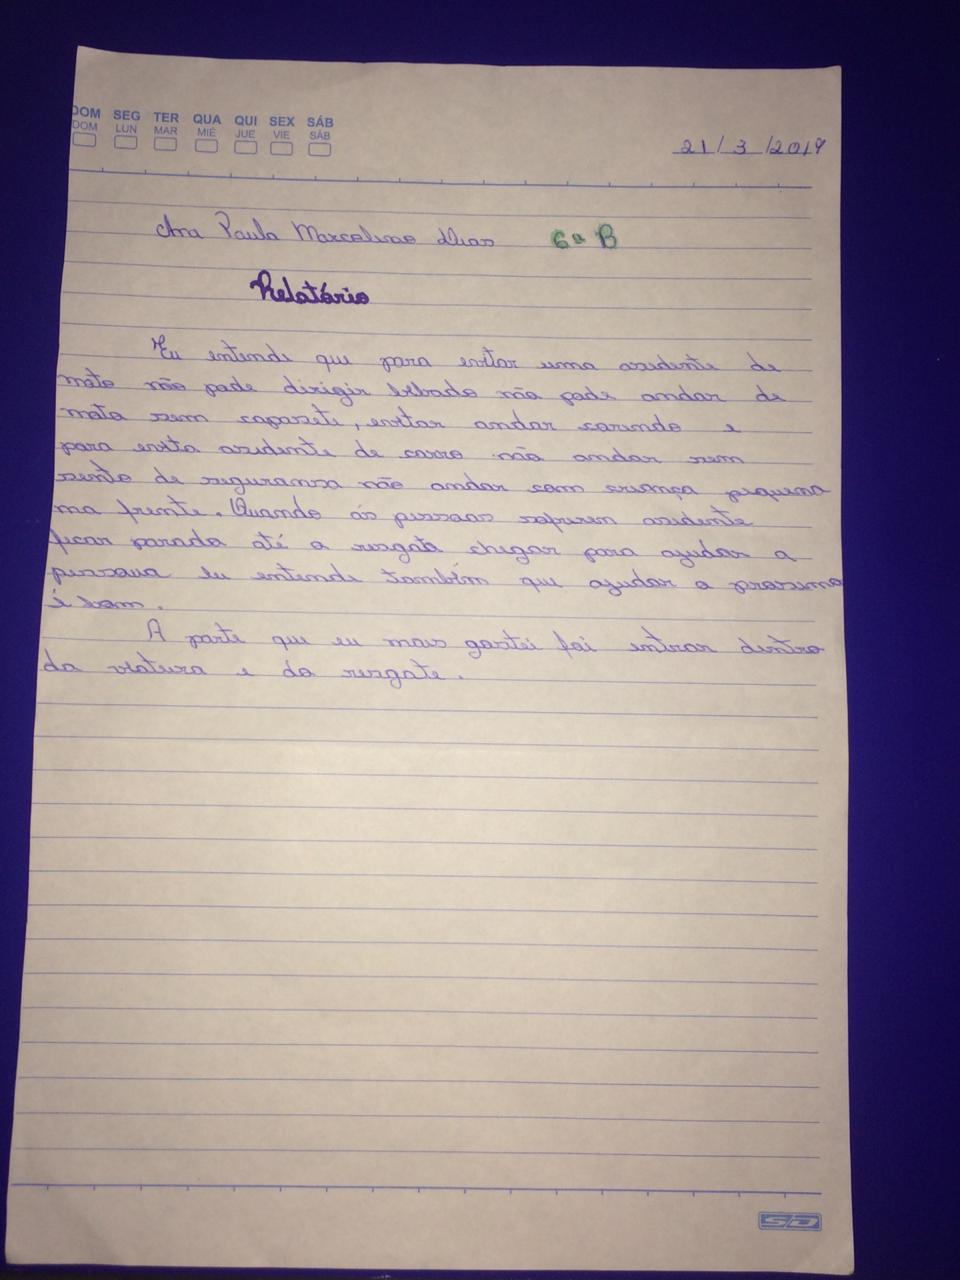 DOM SEG TER QUA QUI SEX SÁB
DOM LUN MAR MIÉ JUE VIE SÁB
21/3/2019
Ana Paula Marcelino Dias 6ª B
Relatório
Eu entende que para evitar uma asidente de
moto não pode dirigir bebado não pode andar de
moto sem capaseti, evitar andar corindo e
para evita asidente de carro não andar sem
sento de seguransa não andar com criança pequena
na frente. Quando as pessoas sofrerem asidente
ficar parado até o resgate chegar para ajudar a
pessoua eu entende também que ajudar o prosimo
é bom.
A parte que eu mais gostei foi entrar dentro
da viatura e do resgate.
SD